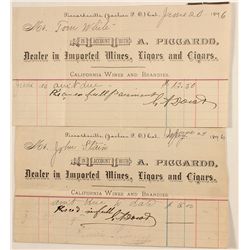 Pioneerville, (Jackson P. O.) Cal. June 20 1896
Mr. Tom White
IN ACCOUNT WITH A. PICCARDO,
Dealer in Imported Wines, Liqors and Cigars.
CALIFORNIA WINES AND BRANDIES
amt due $12.50
Received full payment
A. Piccardo
(Jackson P. O.) Cal. 189
Mr. John Stain
IN ACCOUNT WITH A. PICCARDO,
Dealer in Imported Wines, Liqors and Cigars.
CALIFORNIA WINES AND BRANDIES
amt due to date $
Recd in full
A. Piccardo